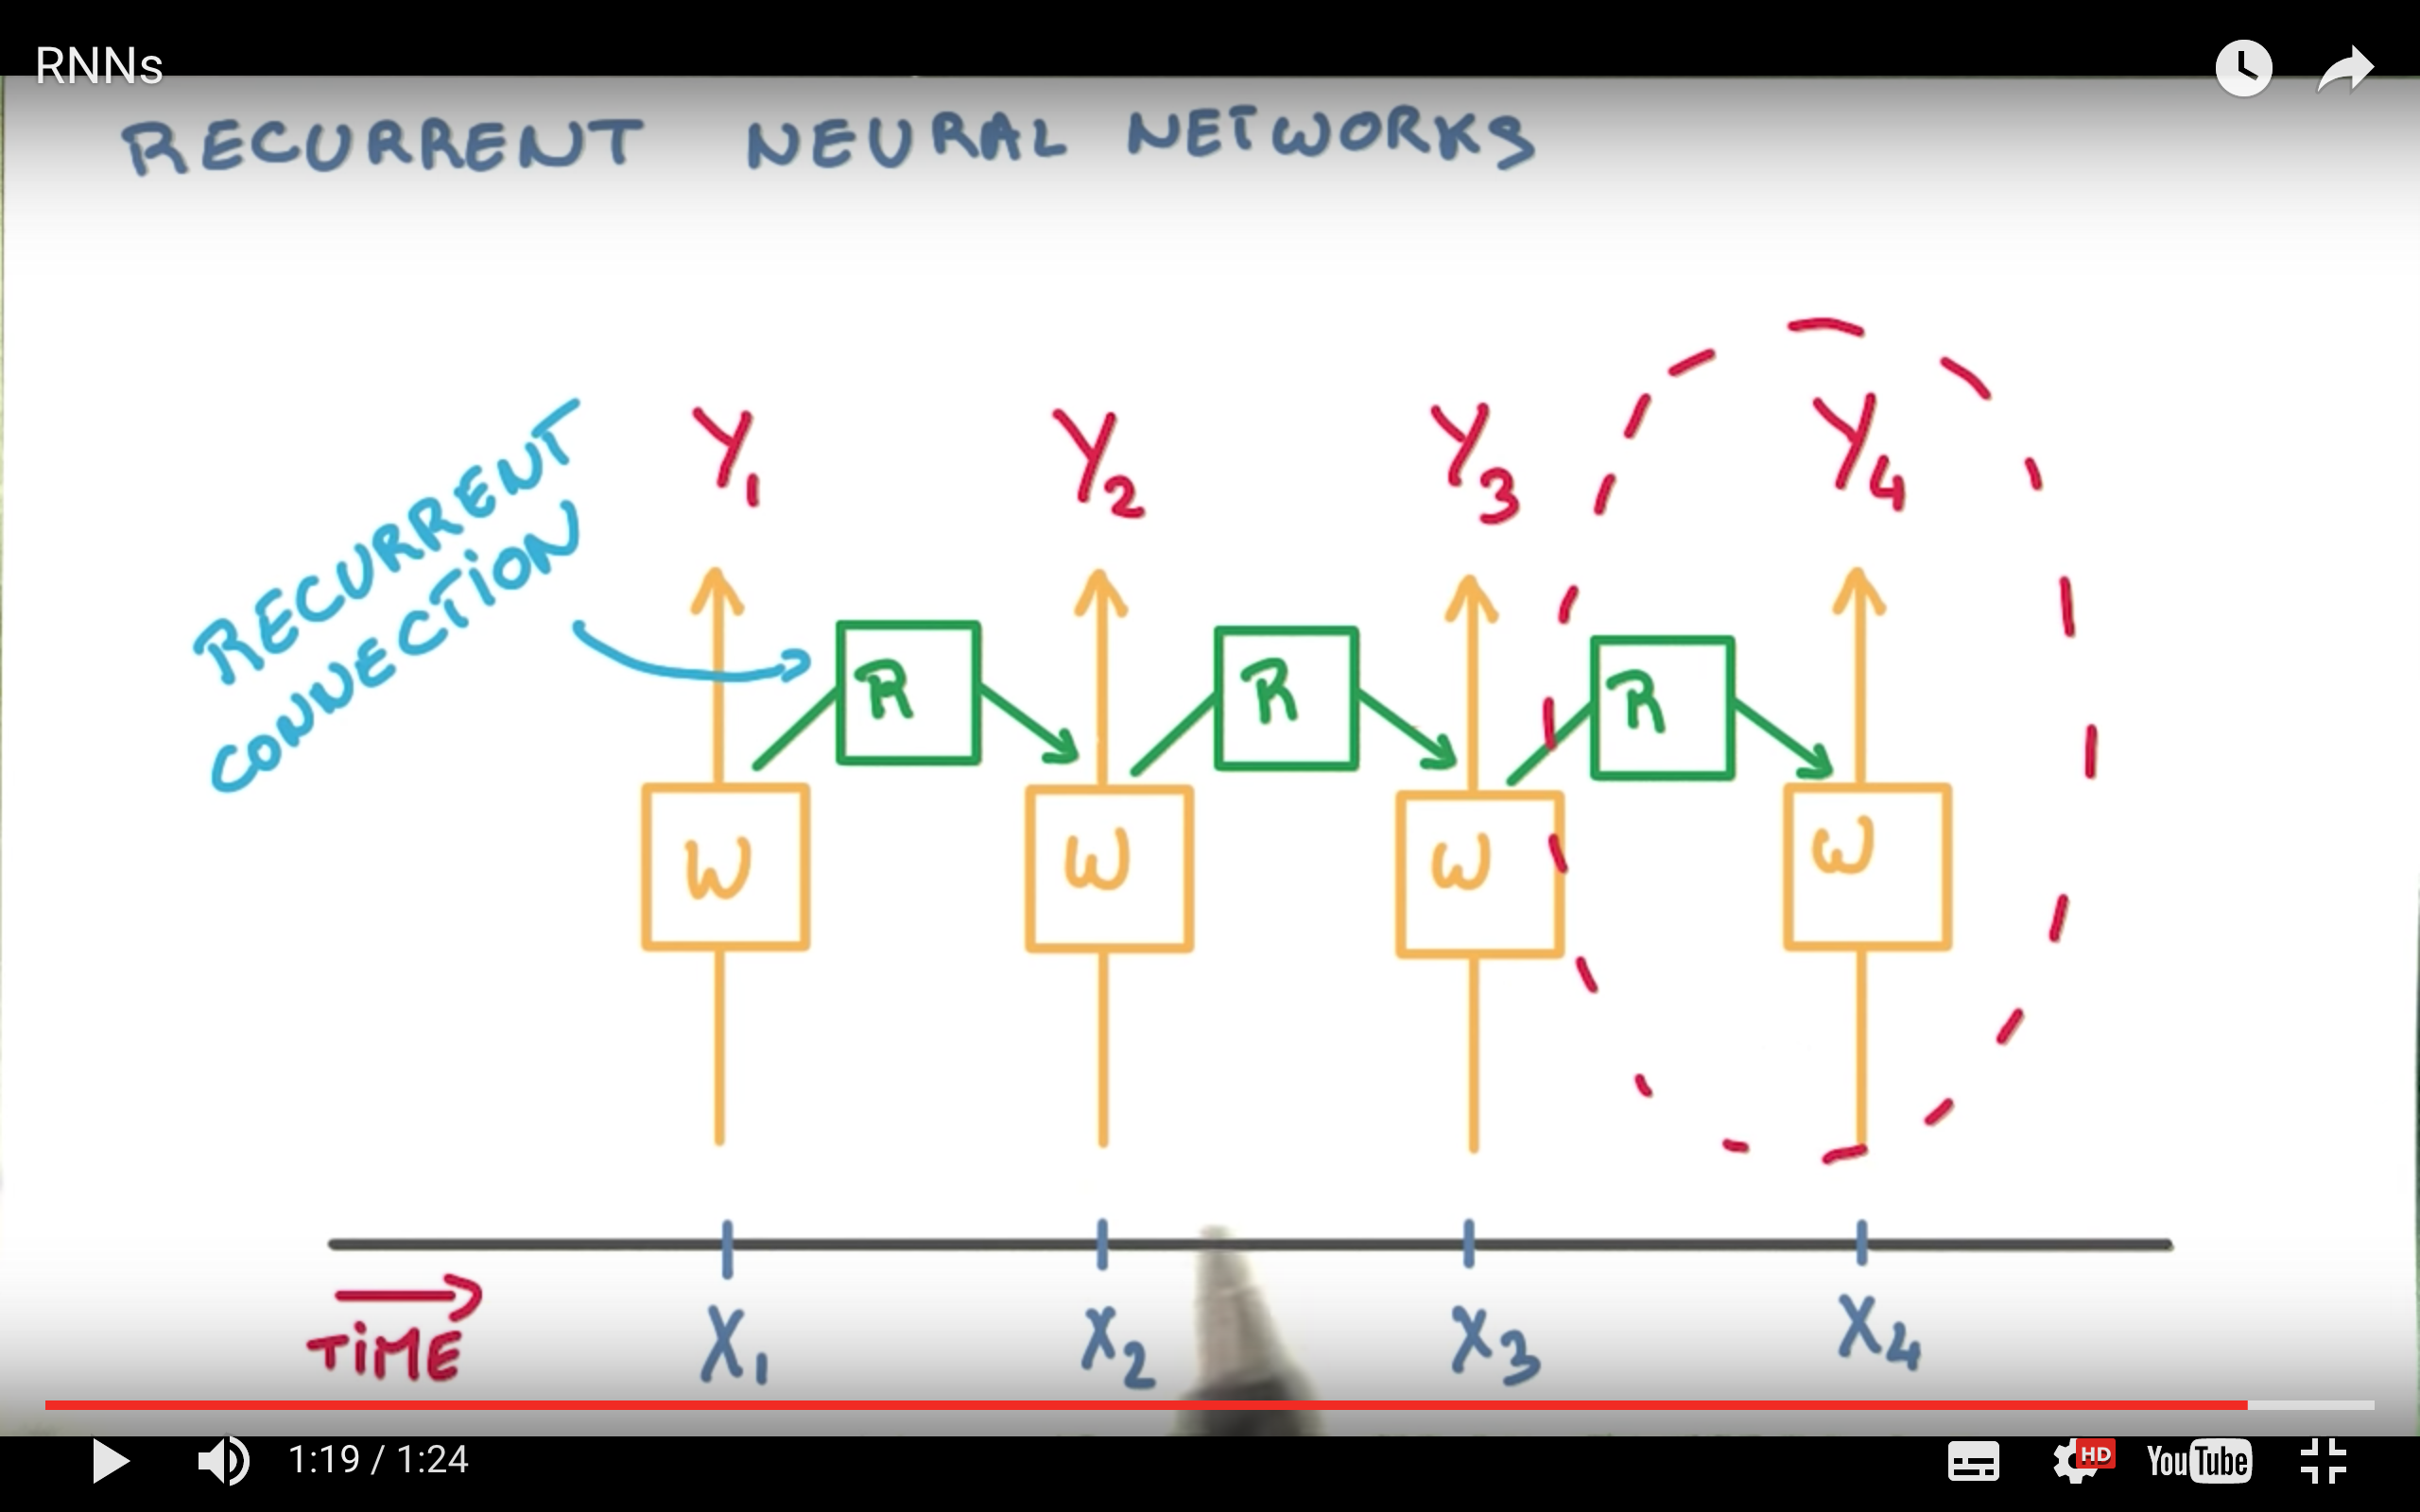 RNNs
RECURRENT NEURAL NETWORKS
RECURRENT
CONNECTION
Y1 Y2 Y3 Y4
R R R
W W W W
TIME
X1 X2 X3 X4
1:19 / 1:24
HD
YouTube